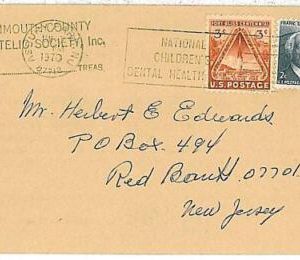 MOUTH COUNTY
TELIC SOCIETY, Inc.
TREAS.
1970
NATIONAL
CHILDREN'S
DENTAL HEALTH
FORT BLISS CENTENNIAL
3¢ 3¢
U.S. POSTAGE
2¢
Mr. Herbert E Edwards
P O Box 494
Red Bank 07701
New Jersey